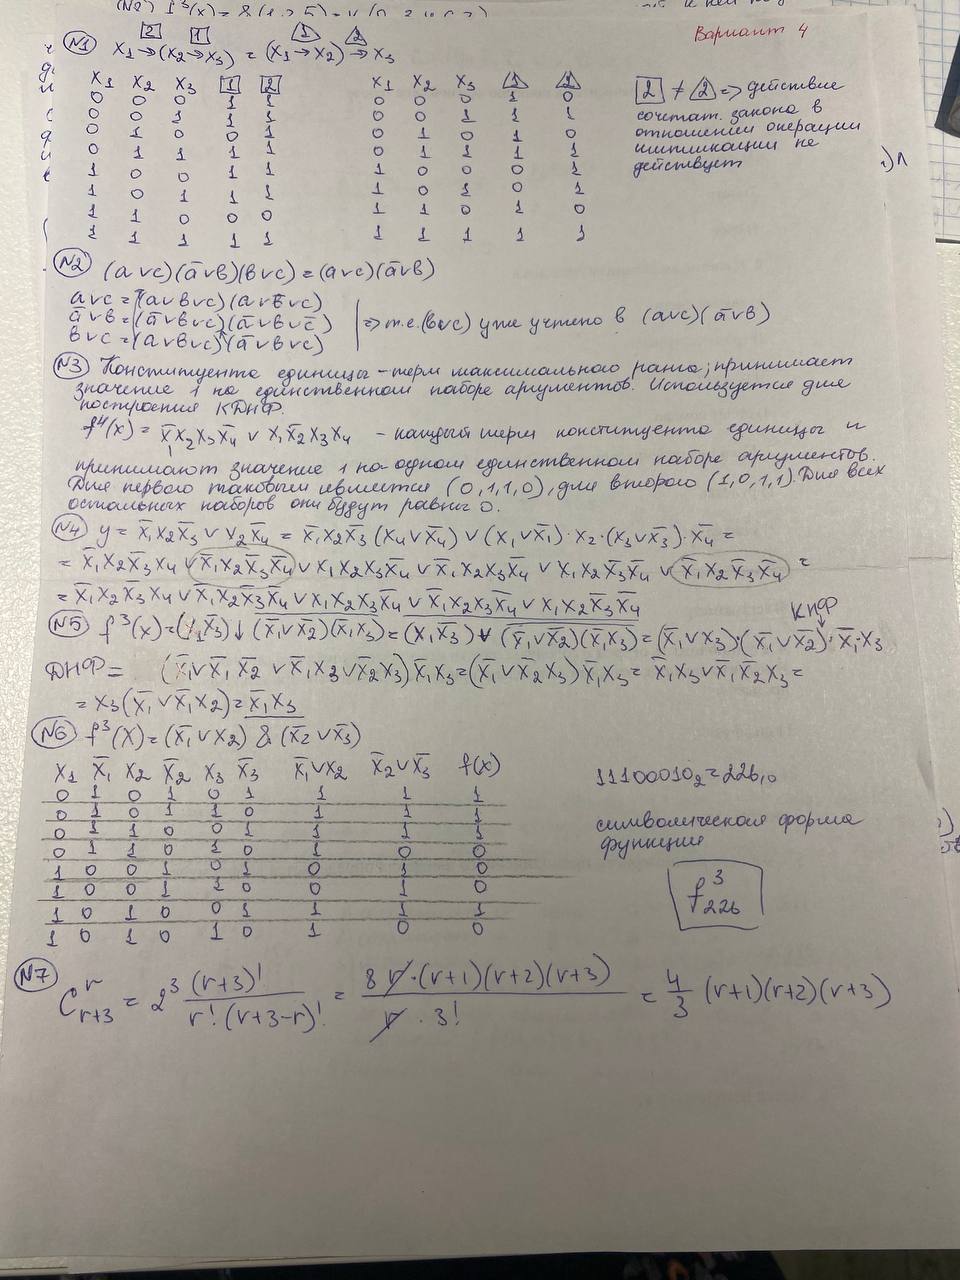 Вариант 4
№1 x₁→(x₂→x₃) = (x₁→x₂)→x₃
2 1 1 2
x₁ x₂ x₃ 1 2 x₁ x₂ x₃ 1 2
0 0 0 1 1 0 0 0 1 0
0 0 1 1 1 0 0 1 1 1
0 1 0 0 1 0 1 0 1 0
0 1 1 1 1 0 1 1 1 1
1 0 0 1 1 1 0 0 0 1
1 0 1 1 1 1 0 1 0 1
1 1 0 0 0 1 1 0 1 0
1 1 1 1 1 1 1 1 1 1
2 ≠ 2 => действие
сочетат. закона в
отношении операции
импликации не
действует
№2 (a∨c)(a̅∨b)(b∨c) = (a∨c)(a̅∨b)
a∨c = (a∨b∨c)(a∨b̅∨c)
a̅∨b = (a̅∨b∨c)(a̅∨b∨c̅) => т.е. (b∨c) уже учтено в (a∨c)(a̅∨b)
b∨c = (a∨b∨c)(a̅∨b∨c)
№3 Конституента единицы - терм максимального ранга; принимает
значение 1 на единственном наборе аргументов. Используется для
построения КДНФ.
f⁴(x) = x̅₁x₂x₃x̅₄ ∨ x₁x̅₂x₃x₄ - каждый терм конституента единицы и
принимают значение 1 на одном единственном наборе аргументов.
Для первого таковым является (0,1,1,0), для второго (1,0,1,1). Для всех
остальных наборов они будут равны 0.
№4 y = x̅₁x₂x̅₃ ∨ x₂x̅₄ = x̅₁x₂x̅₃(x₄∨x̅₄) ∨ (x₁∨x̅₁)·x₂·(x₃∨x̅₃)·x̅₄ =
= x̅₁x₂x̅₃x₄ ∨ x̅₁x₂x̅₃x̅₄ ∨ x₁x₂x₃x̅₄ ∨ x̅₁x₂x₃x̅₄ ∨ x₁x₂x̅₃x̅₄ ∨ x̅₁x₂x̅₃x̅₄ =
= x̅₁x₂x̅₃x₄ ∨ x̅₁x₂x̅₃x̅₄ ∨ x₁x₂x₃x̅₄ ∨ x̅₁x₂x₃x̅₄ ∨ x₁x₂x̅₃x̅₄
КНФ
№5 f³(x) = (x₁x̅₃)↓(x̅₁∨x̅₂)(x̅₁x₃) = (x₁x̅₃) ∨ (x̅₁∨x̅₂)(x̅₁x₃) = (x̅₁∨x₃)·(x̅₁∨x̅₂)·x̅₁·x₃
ДНФ = (x̅₁∨x̅₁x̅₂∨x̅₁x₃∨x̅₂x₃)x̅₁x₃ = (x̅₁∨x̅₂x₃)x̅₁x₃ = x̅₁x₃∨x̅₁x̅₂x₃ =
= x₃(x̅₁∨x̅₁x₂) = x̅₁x₃
№6 f³(x) = (x̅₁∨x₂) & (x̅₂∨x̅₃)
x₁ x̅₁ x₂ x̅₂ x₃ x̅₃ x̅₁∨x₂ x̅₂∨x̅₃ f(x)
0 1 0 1 0 1 1 1 1
0 1 0 1 1 0 1 1 1
0 1 1 0 0 1 1 1 1
0 1 1 0 1 0 1 0 0
1 0 0 1 0 1 0 1 0
1 0 0 1 1 0 0 1 0
1 0 1 0 0 1 1 1 1
1 0 1 0 1 0 1 0 0
11100010₂ = 226₁₀
символическая форма
функции
f³₂₂₆
№7 Cʳᵣ₊₃ = 2³ (r+3)! / r!·(r+3-r)! = 8 r!·(r+1)(r+2)(r+3) / r·3! = 4/3 (r+1)(r+2)(r+3)